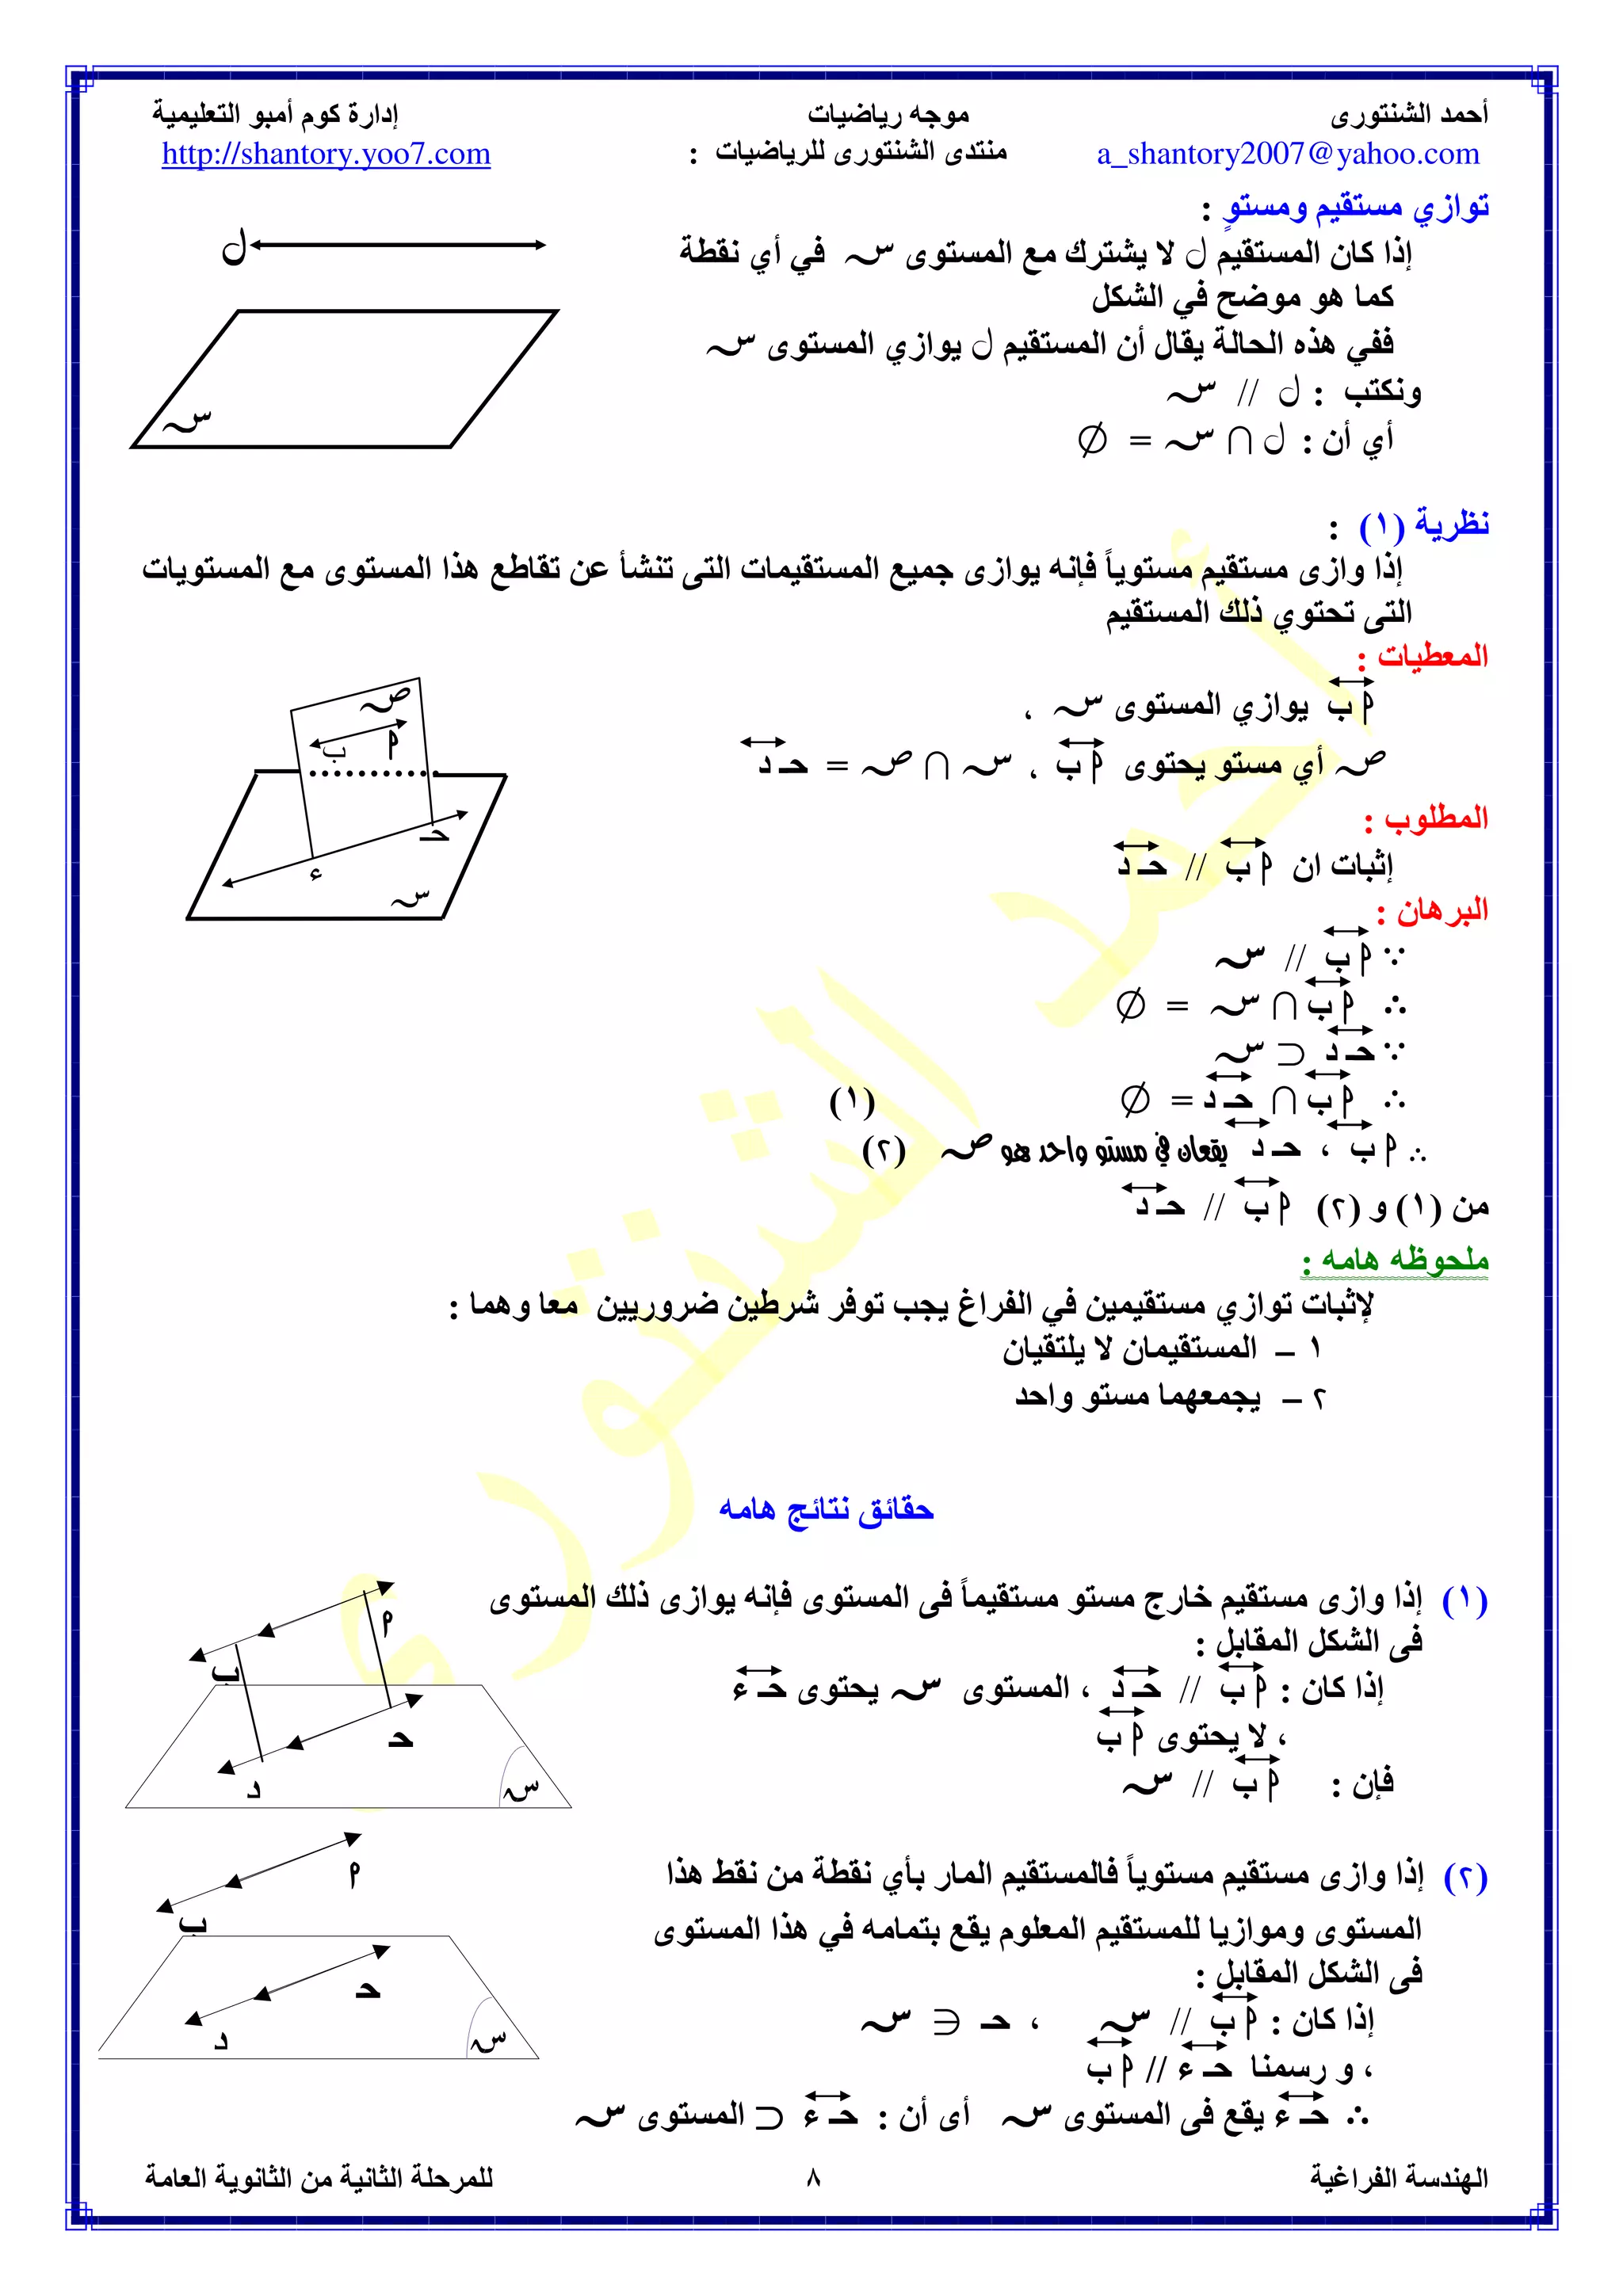 أحمد الشنتورى موجه رياضيات إدارة كوم أمبو التعليمية
a_shantory2007@yahoo.com منتدى الشنتورى للرياضيات : http://shantory.yoo7.com
توازي مستقيم ومستوٍ :
إذا كان المستقيم ل لا يشترك مع المستوى س في أي نقطة
كما هو موضح في الشكل
ففي هذه الحالة يقال أن المستقيم ل يوازي المستوى س
ونكتب : ل // س
أي أن : ل ∩ س = ∅
ل
س
نظرية (١) :
إذا وازى مستقيم مستوياً فإنه يوازى جميع المستقيمات التى تنشأ عن تقاطع هذا المستوى مع المستويات
التى تحتوي ذلك المستقيم
المعطيات :
م ب يوازي المستوى س ،
ص أي مستو يحتوى م ب ، س ∩ ص = حـ د
المطلوب :
إثبات ان م ب // حـ د
البرهان :
∵ م ب // س
∴ م ب ∩ س = ∅
∵ حـ د ⊃ س
∴ م ب ∩ حـ د = ∅ (١)
∴ م ب ، حـ د يقعان في مستو واحد هو ص (٢)
من (١) و (٢) م ب // حـ د
ص
م
ب
حـ
ء
س
ملحوظه هامه :
لإثبات توازي مستقيمين في الفراغ يجب توفر شرطين ضروريين معا وهما :
١ – المستقيمان لا يلتقيان
٢ – يجمعهما مستو واحد
حقائق نتائج هامه
(١) إذا وازى مستقيم خارج مستو مستقيماً فى المستوى فإنه يوازى ذلك المستوى
فى الشكل المقابل :
إذا كان : م ب // حـ د ، المستوى س يحتوى حـ ء
، لا يحتوى م ب
فإن : م ب // س
م
ب
حـ
د
س
(٢) إذا وازى مستقيم مستوياً فالمستقيم المار بأي نقطة من نقط هذا
المستوى وموازيا للمستقيم المعلوم يقع بتمامه في هذا المستوى
فى الشكل المقابل :
إذا كان : م ب // س ، حـ ∋ س
، و رسمنا حـ ء // م ب
∴ حـ ء يقع فى المستوى س أى أن : حـ ء ⊃ المستوى س
م
ب
حـ
د
س
أحمد الشنتورى
الهندسة الفراغية ٨ للمرحلة الثانية من الثانوية العامة